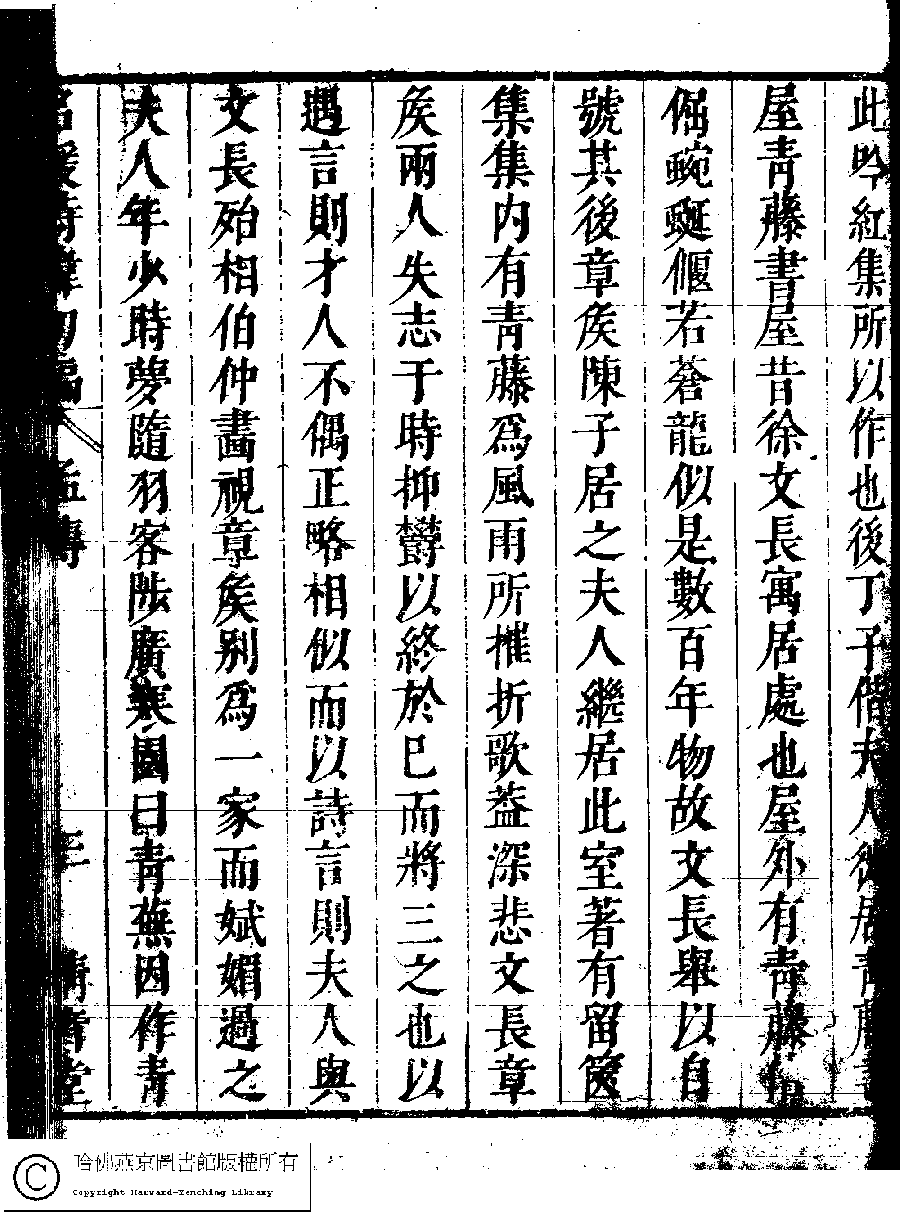 此吟紅集所以作也後丁子偕夫人徙居青藤書
屋青藤書屋昔徐文長寓居處也屋外有青藤
倔蜿蜒偃若蒼龍似是數百年物故文長舉以自
號其後章矦陳子居之夫人繼居此室著有留篋
集集内有青藤爲風雨所摧折歌葢深悲文長章
矦兩人失志于時抑欝以終於巳而將三之也以
遇言則才人不偶正略相似而以詩言則夫人與
文長殆相伯仲畵視章矦别爲一家而娬媚過之
夫人年少時夢隨羽客陟廣㐮園曰青蕪因作青
名媛詩緯初編 孟傳 清音堂
哈佛燕京圖書館版權所有
Copyright Harvard-Yenching Library